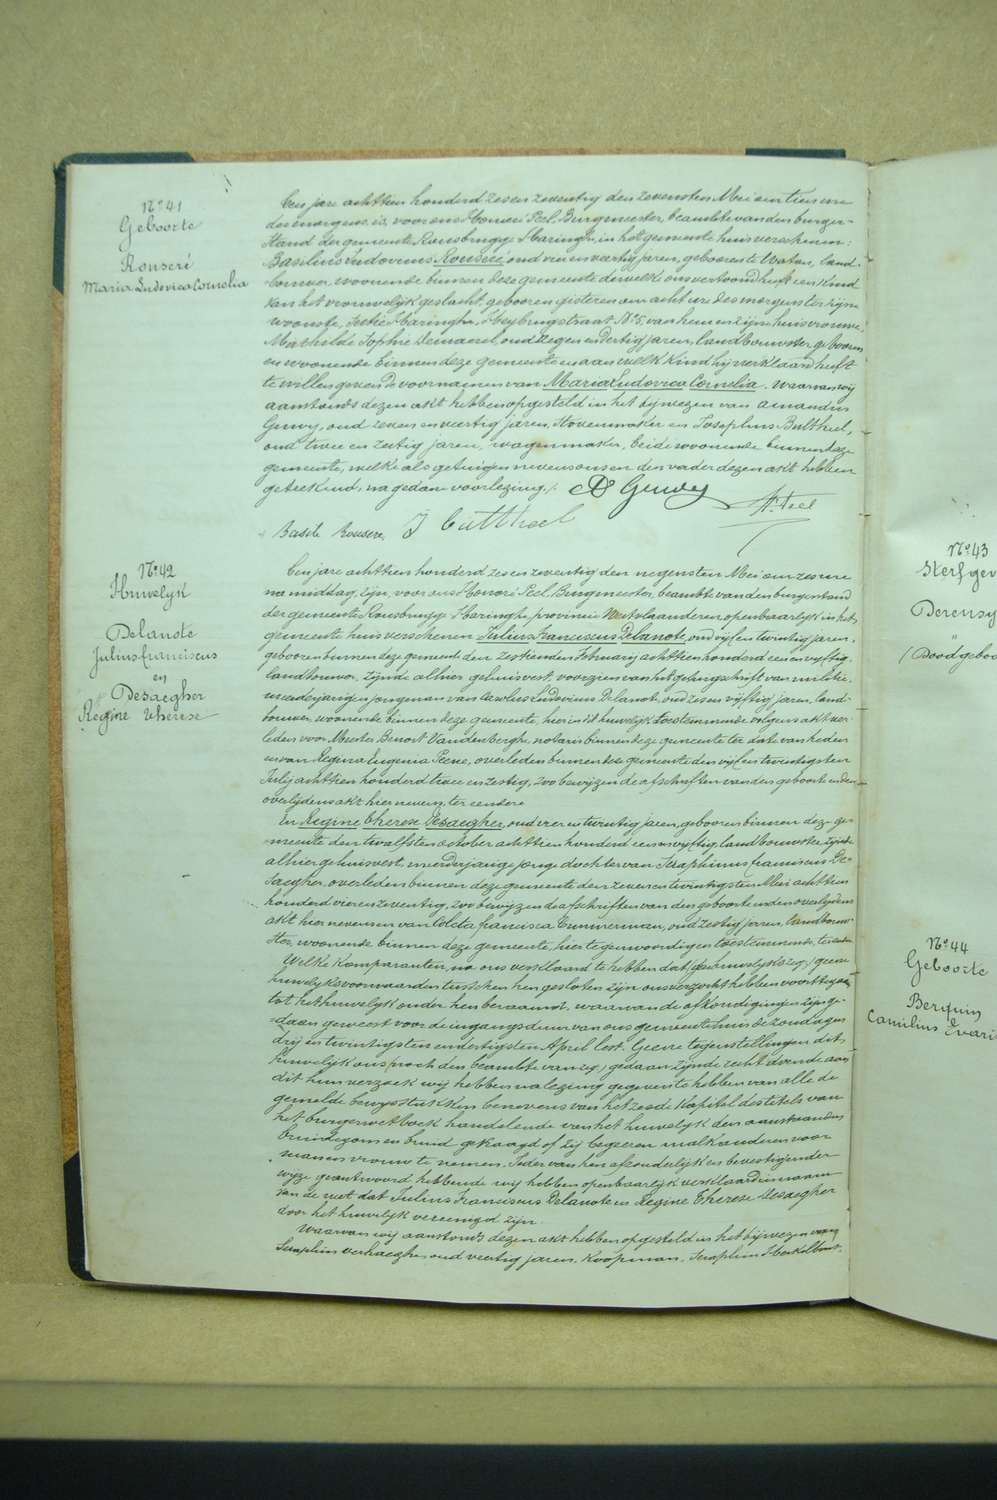 N° 41
Geboorte
Rouseré
Maria Ludovica Cornelia
Een jare achttien honderd zes en zeventig den zevensten Mei om tien ure
des morgens is, voor ons Honoré Peel Burgmeester, beambte van den burger-
stand der gemeente Rousbrugge Haringhe, in het gemeente huis verschenen:
Basilius Ludovicus Rouseré, oud en veertig jaren, geboren te Watou, land-
bouwer, woonende binnen deze gemeente dewelke ons vertoond heeft een kind
van het vrouwelijk geslacht, geboren gisteren om acht ure des morgens ter zijne
woonste, Haringhe, straat N° 5, van hem en zijne huisvrouwe,
Mathilde Sophie Demaerel, oud negen en dertig jaren, landbouwster, geboren
en woonende binnen deze gemeente en aan welk kind hij verklaard heeft
te willen geven de voornamen van Maria Ludovica Cornelia. Waarvan wij
aanstonds dezen akt hebben opgesteld in het bijwezen van Amandus
Gewy, oud zeven en veertig jaren, Stovenmaker en Josephus Bultheel,
oud twee en zestig jaren, wagenmaker, beide woonende binnen deze
gemeente, welke als getuigen nevens ons en den vader dezen akt hebben
geteekend, na gedane voorlezing./.
Basile Rouseré J Bultheel
H. Peel
N° 42
Huwelyk
Delanote
Julius franciscus
en
Desaegher
Regine therese
Een jare achttien honderd zes en zeventig den negensten Mei om zes ure
na middag, zijn, voor ons Honoré Peel Burgmeester, beambte van den burgerstand
der gemeente Rousbrugge Haringhe, provincie Westvlaanderen openbaarlijk in het
gemeente huis verschenen Julius Franciscus Delanote, oud vijf en twintig jaren,
geboren binnen deze gemeente den zestienden Februarij achttien honderd een en vijftig,
landbouwer, zijnde alhier gehuisvest, voorzien van het getuigschrift van militie,
meerderjarige jongman van Carolus Ludovicus Delanote, oud zes en vijftig jaren, land-
bouwer, woonende binnen deze gemeente, hier in dit huwelijk toestemmende volgens akt ver-
leden voor Meester Benoit Vandenberghe, notaris binnen deze gemeente ter date van heden
en van Regina Eugenia Peene, overleden binnen deze gemeente den vijf en twintigsten
Julij achttien honderd twee en zestig, zoo bewijzen de afschriften van den geboorte en den
overlijdens akt hier nevens, ter eendere
En Regine therese Desaegher, oud vier en twintig jaren, geboren binnen deze ge-
meente den twalfsten october achttien honderd een en vijftig, landbouwster, zijnde
alhier gehuisvest, meerderjarige jonge dochter van Seraphinus franciscus De-
saegher, overleden binnen deze gemeente den zeven en twintigsten Mei achttien
honderd vier en zeventig, zoo bewijzen de afschriften van den geboorte en den overlijdens
akt hier nevens en van Coleta francisca Timmerman, oud zestig jaren, landbouw-
ster, woonende binnen deze gemeente, hier tegenwoordig en toestemmende, ter andere
Welke komparanten, na ons verklaard te hebben dat geene
huwelijksvoorwaarden tusschen hen gesloten zijn ons verzocht hebben voorttegaan
tot het huwelijk onder hen beraamd, waarvan de afkondigingen zijn ge-
daan geweest voor de ingangsdeur van ons gemeentehuis de zondagen
drij en twintigsten en dertigsten April lest. Geene tegenstellingen dit
huwelijk ons gedaan zijnde recht doende aan
dit hun verzoek wij hebben na lezing gegeven te hebben van alle de
gemelde bewysstukken benevens van het zesde kapitel des titels van
het burgerwetboek handelende van het huwelyk den aanstaenden
bruidegom en bruid gevraagd of zij begeeren malkanderen voor
man en vrouw te nemen. Ieder van hen afzonderlijk en bevestigender
wyze geantwoord hebbende wij hebben openbaarlijk verklaard in naam
van de wet dat Julius Franciscus Delanote en Regine Therese Desaegher
door het huwelijk vereenigd zijn.
Waarvan wij aanstonds dezen akt hebben opgesteld in het bijwezen van
Seraphin Verhaeghe, oud veertig jaren, Koopman, Seraphin
N° 43
Sterfgev
Derensy
"
(Doodgebo
N° 44
Geboorte
Berquin
Camilius Evari